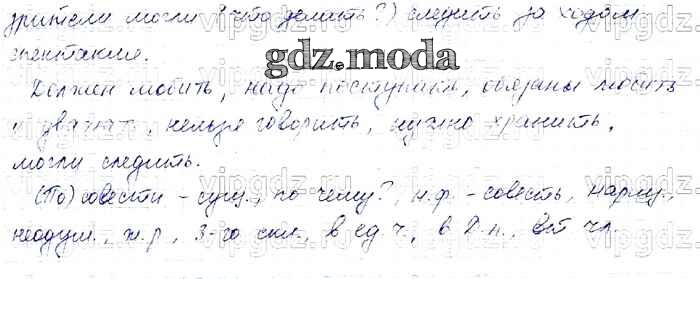 зрители могли (что делать?) следить за ходом
спектакля.
gdz.moda
Должен любить, надо поступать, обязаны любить
и уважать, нельзя говорить, нужно хранить,
могли следить.
(По) совести – сущ., по чему?, н.ф. – совесть, нариц.,
неодуш., ж.р., 3-го скл., в ед.ч., в Д.п., вт. чл.